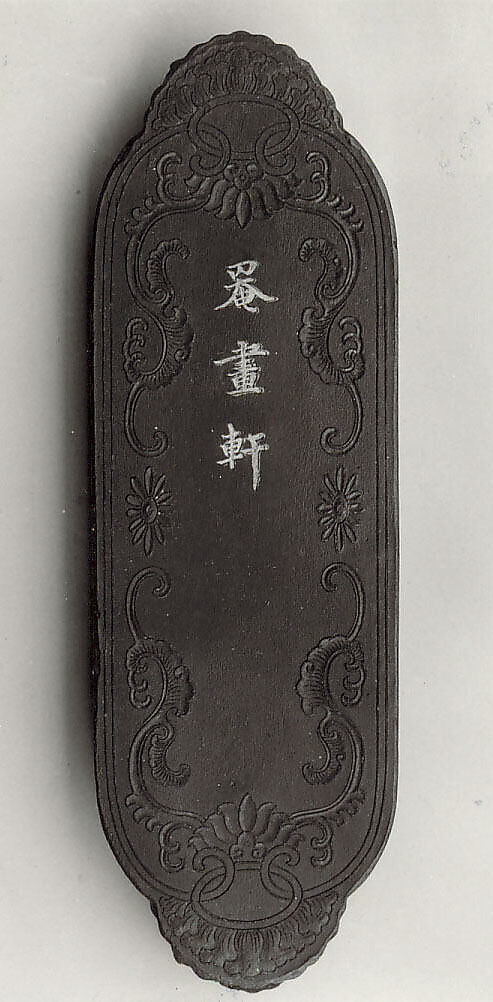 罨畫軒